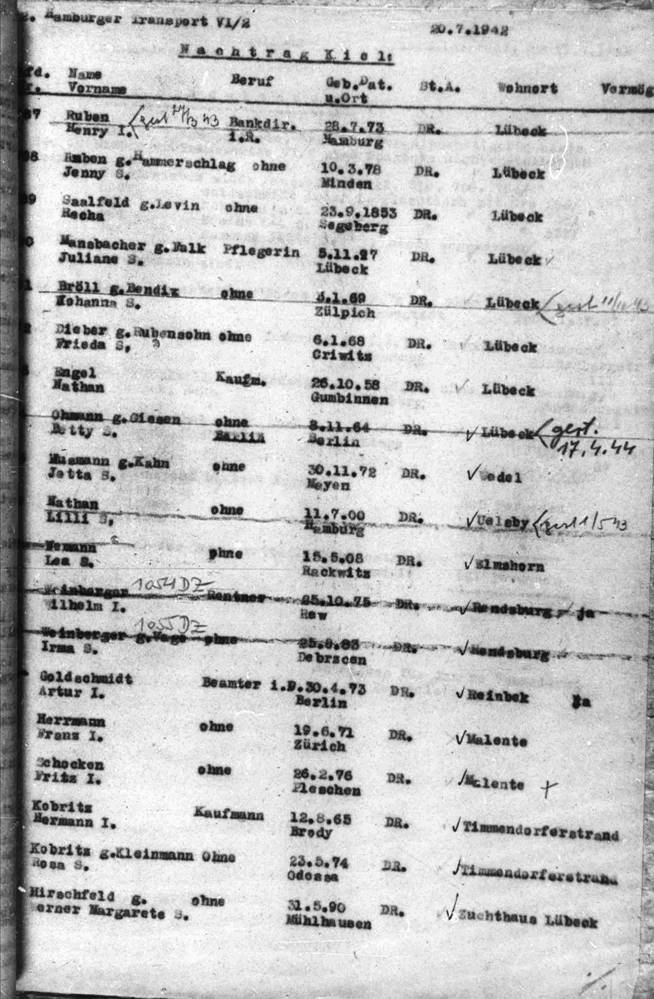 2. Hamburger Transport VI/2 20.7.1942
Nachtrag Kiel:
fd. Name Beruf Geb.Dat. St.A. Wohnort Vermög
r. Vorname u.Ort
87 Ruben gest Bankdir. 28.7.73 DR. Lübeck
Henry I. i.R. Hamburg
88 Ruben g.Hammerschlag ohne 10.3.78 DR. Lübeck
Jenny S. Minden
89 Saalfeld g.Levin ohne 23.9.1853 DR. Lübeck
Recha Segeberg
0 Mansbacher g.Falk Pflegerin 5.11.27 DR. Lübeck
Juliane S. Lübeck
1 Bröll g.Bendix ohne 3.1.69 DR. Lübeck gest
Johanna S. Zülpich
2 Dieber g.Rubensohn ohne 6.1.68 DR. Lübeck
Frieda S. Criwitz
Engel Kaufm. 26.10.58 DR. Lübeck
Nathan Gumbinnen
Ohmann g.Giesen ohne 8.11.64 DR. Lübeck gest.
Betty S. Berlin Berlin 17.4.44
Musmann g.Kahn ohne 30.11.72 DR. Wedel
Jetta S. Mayen
Nathan ohne 11.7.00 DR. Uelsby gest 1/5 43
Lilli S. Hamburg
Nemann ohne 15.5.08 DR. Elmshorn
Lea S. Rackwitz
Weinberger 1054 DZ Rentner 25.10.75 DR. Rendsburg ja
Wilhelm I.
Weinberger g.Vago 1055 DZ ohne DR. Rendsburg
Irma S. Debrecen
Goldschmidt Beamter i.R. 30.4.73 DR. Reinbek Ja
Artur I. Berlin
Herrmann ohne 19.6.71 DR. Malente
Franz I. Zürich
Schocken ohne 26.2.76 DR. Malente +
Fritz I. Pleschen
Kobritz Kaufmann 12.8.65 DR. Timmendorferstrand
Hermann I. Brody
Kobritz g.Kleinmann Ohne 23.5.74 DR. Timmendorferstrand
Rosa S. Odessa
Hirschfeld g. ohne 31.5.90 DR. Zuchthaus Lübeck
erner Margarete S. Mühlhausen